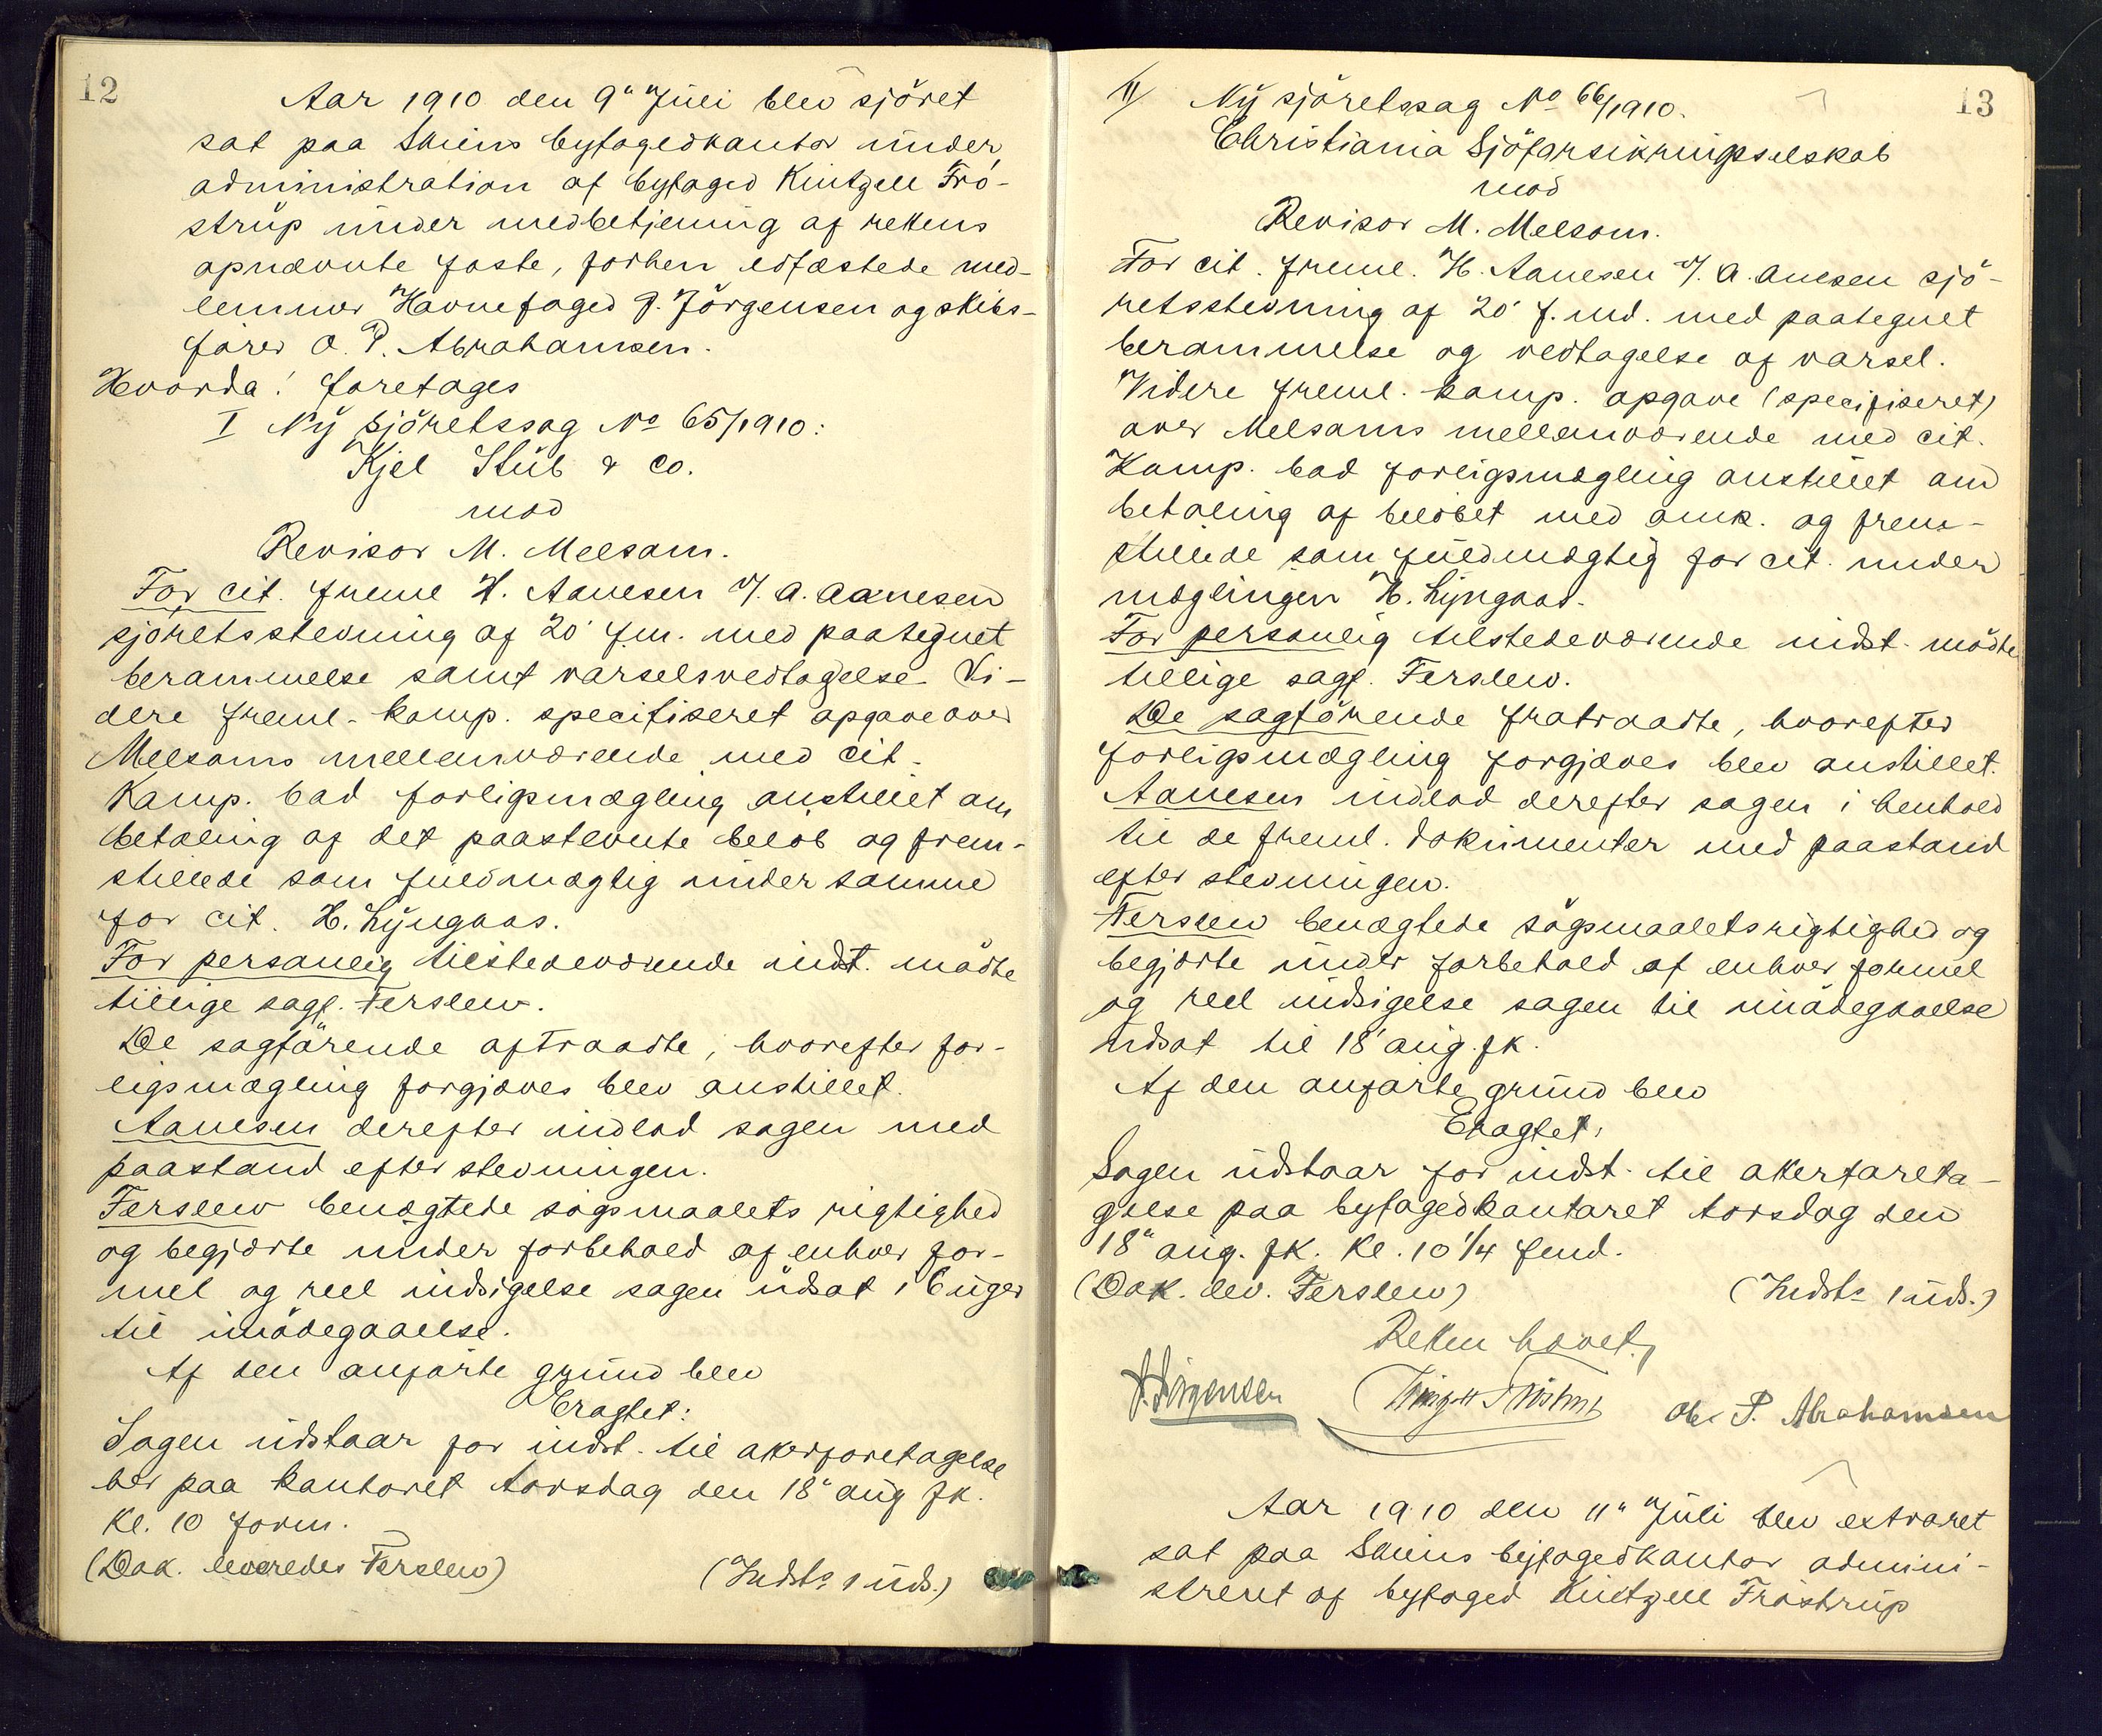 12
Aar 1910 den 9" Juli blev sjöret
sat paa Skiens byfogedkontor under
administration af byfoged Kintzell Frö-
strup under medbetjening af rettens
opnævnte faste, forhen edfæstede med-
lemmer Havnefoged J. Jörgensen og skibs-
förer O. P. Abrahamsen.
Hvorda! foretoges
I Ny sjöretssag No 65/1910:
Kjel Stub & Co.
mod
Revisor M. Melsom.
For cit. freml H. Aanesen v/. A. Aanesen
sjöretsstevning af 20' f.m. med paategnet
berammelse samt varselsvedtagelse. Vi-
dere freml. komp. specifiseret opgave over
Melsoms mellemværende med cit.
Komp. bad forligsmægling anstillet om
betaling af det paastevnte belöb og frem-
stillede som fuldmægtig under samme
for cit. H. Lyngaas.
For personlig tilstedeværende indst. mödte
tillige sagf. Ferslew.
De sagförende aftraadte, hvorefter for-
ligsmægling forgjæves blev anstillet.
Aanesen derefter indlod sagen med
paastand efter stevningen.
Ferslew benægtede sögsmaalets rigtighed
og begjærte under forbehold af enhver for-
mel og reel indsigelse sagen udsat i 6 uger
til imödegaaelse.
Af den anförte grund blev
Eragtet:
Sagen udstaar for indst. til atterforetagelse
her paa kontoret torsdag den 18" aug fk.
Kl. 10 form.
(Dok. leveredes Ferslew) (Indsts 1 uds.)
13
II/ Ny sjöretssag No 66/1910.
Christiania Sjöforsikringsselskab
mod
Revisor M. Melsom.
For cit. freml. H. Aanesen v/. A. Anesen sjö-
retsstevning af 20' f. md. med paategnet
berammelse og vedtagelse af varsel.
Videre freml. komp. opgave (specifiseret)
over Melsoms mellemværende med cit.
Komp. bad forligsmægling anstillet om
betaling af belöbet med omk. og frem-
stillede som fuldmægtig for cit. under
mæglingen H. Lyngaas.
For personlig tilstedeværende indst. mödte
tillige sagf. Ferslew.
De sagförende fratraadte, hvorefter
forligsmægling forgjæves blev anstillet.
Aanesen indlod derefter sagen i henhold
til de freml. dokumenter med paastand
efter stevningen.
Ferslew benægtede sögsmaalets rigtighed og
begjærte under forbehold af enhver formel
og reel indsigelse sagen til imödegaaelse
udsat til 18' aug. fk.
Af den anförte grund blev
Eragtet:
Sagen udstaar for indst. til atterforeta-
gelse paa byfogedkontoret torsdag den
18" aug. fk. Kl. 10 1/4 fmd.
(Dok. lev. Ferslew) (Indsts 1 uds.)
Retten hævet.
J. Jörgensen Kintzell Fröstrup Ole P. Abrahamsen
Aar 1910 den 11" Juli blev extraret
sat paa Skiens byfogedkontor admini-
streret af byfoged Kintzell Fröstrup